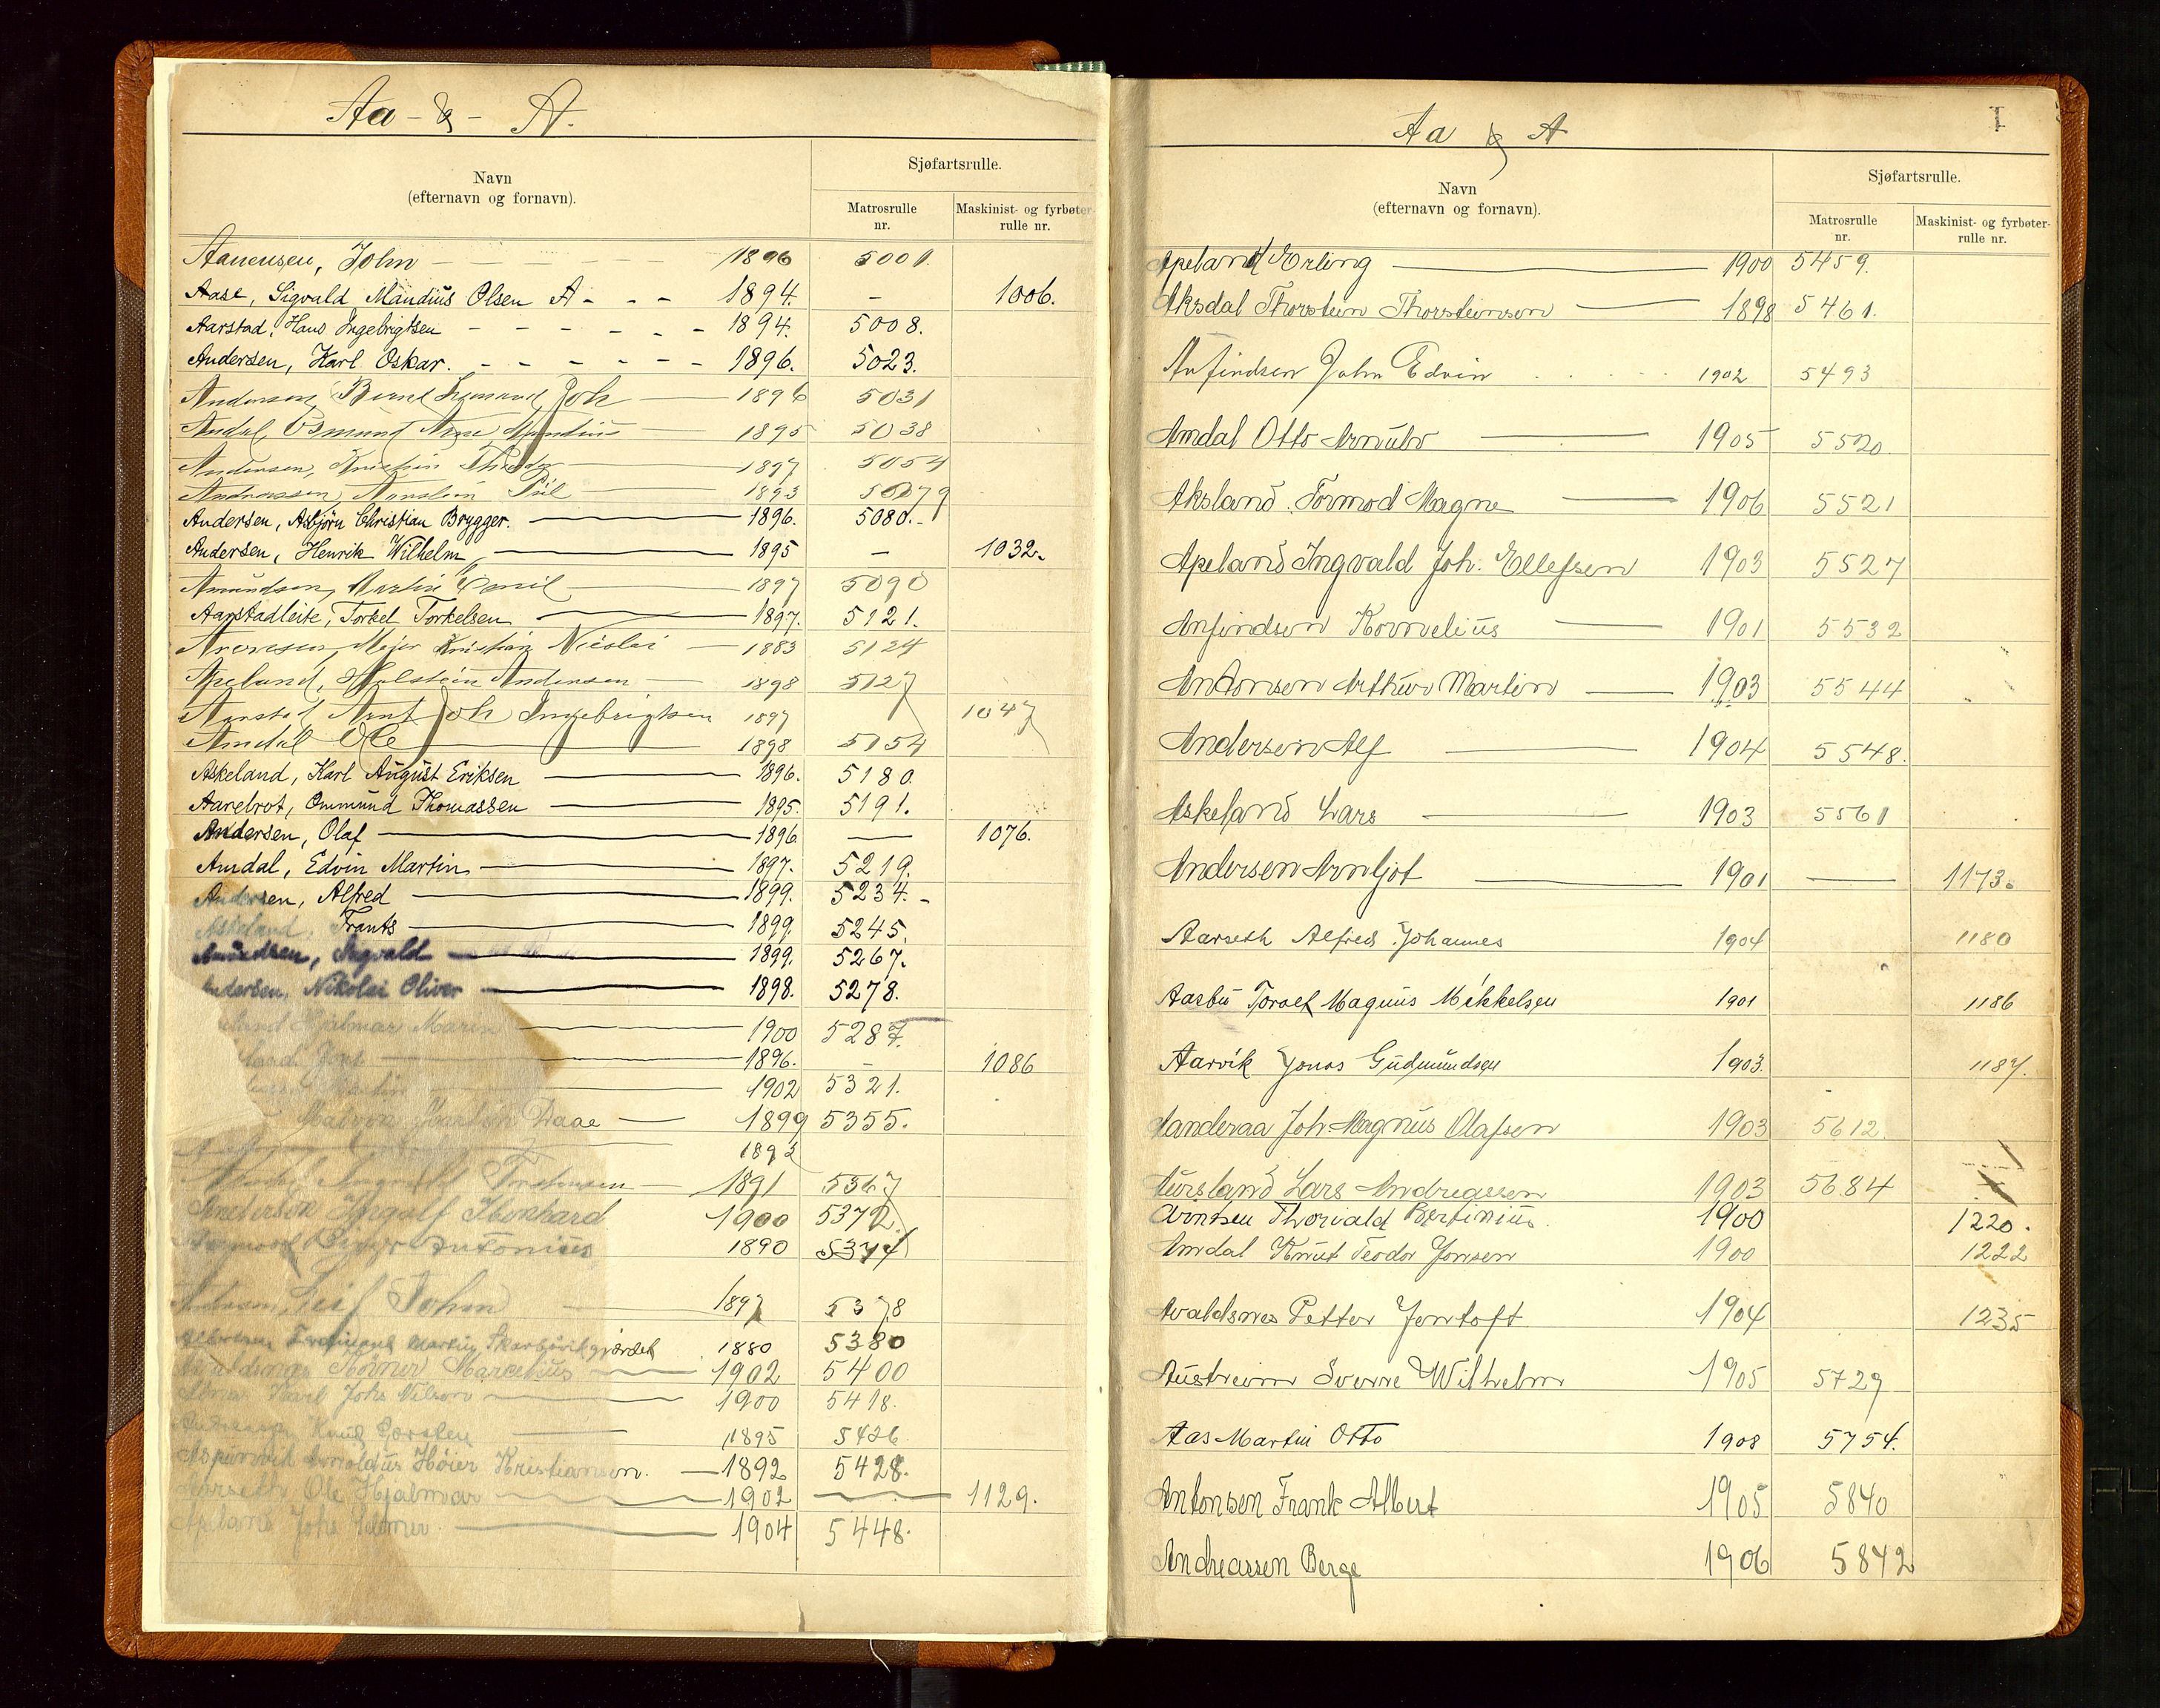 Aa - & - A.
Navn
(efternavn og fornavn).
Sjøfartsrulle.
Matrosrulle
nr.
Maskinist- og fyrbøter-
rulle nr.
Aanensen, John 1896 5001.
Aase, Sigvald Mandius Olsen A - - - 1894. - 1006.
Aarstad, Hans Ingebrigtsen - - - - - - 1894. 5008.
Andersen, Karl Oskar. - - - - - 1896. 5023.
Andersen, Joh 1896 5031
Osmund Arne 1895 5038
Andersen, Kristian 1897 5054
Andreassen, 1893 5079
Andersen, Asbjörn Christian Brygger. 1896. 5080.-
Andersen, Henrik Wilhelm, 1895 - 1032.
Amundsen, Martin Emil 1897 5090
Aarstadleite, Torkel Torkelsen 1897. 5121.
Meier Kristian Nicolai 1883 5124
Apeland, Halstein Andersen 1898 5127
Aarstad, Arnt Joh Ingebrigtsen 1897 1047
Amdal Ole 1898 5154
Askeland, Karl August Eriksen 1896. 5180.
Aarebrot, Ommund Thomassen 1895. 5191.
Andersen, Olaf 1896 — 1076.
Amdal, Edvin Martin 1897. 5219.
Andersen, Alfred 1899. 5234.-
Askeland, Frants 1899. 5245.
Amundsen, Ingvald 1899. 5267.
Andersen, Nikolai Oliver 1898. 5278.
Hjalmar Marin 1900 5287.
Jens 1896. - 1086
1902 5321.
Martin Daae 1899 5355.
1893
Torstensen 1891 5367
Anderson Ingolf 1900 5372.
Birger Antonius 1890 5374
Leif John 1897 5378
Ferdinand Martin 1880 5380
Marcelius 1902 5400
Karl Johs Nilsen 1900 5418.
Knut 1895 5426
Arnoldus Høier Kristiansen. 1892 5428.
Aarseth Ole Hjalmar 1902 — 1129.
Apeland Johs 1904 5448.
Aa & A
I
Navn
(efternavn og fornavn).
Sjøfartsrulle.
Matrosrulle
nr.
Maskinist- og fyrbøter-
rulle nr.
Apeland Erling 1900 5459.
Aksdal Thorstein Thorsteinsen 1898 5461.
Anfindsen John Edvin 1902 5493
Amdal Otto Arnulv 1905 5520
Aksland Tormod Magne 1906 5521
Apeland Ingvald Joh. Ellefsen 1903 5527
Anfindsen Kornelius 1901 5532
Antonsen Arthur Martin 1903 5544
Andersen Alf 1904 5548.
Askeland Lars 1903 5561
Andersen Arnljot 1901 — 1173.
Aarseth Alfred Johannes 1904 1180
Aasbu Toralf Magnus Mikkelsen 1901 1186
Aarvik Jonas Gudmundsen 1903. 1187.
Aanderaa Joh. Magnus Olafsen 1903 5612
Aursland Lars Andreassen 1903 5684
Arntsen Thorvald Bertinius. 1900 1220.
Amdal Knut Teodor Jonsen 1900 1222
Avaldsnes Petter Jentoft 1904 1235
Austreim Sverre Wilhelm 1905 5729
Aas Martin Otto 1908 5754.
Antonsen Frank Albert 1905 5840
Andreassen Berge 1906 5842